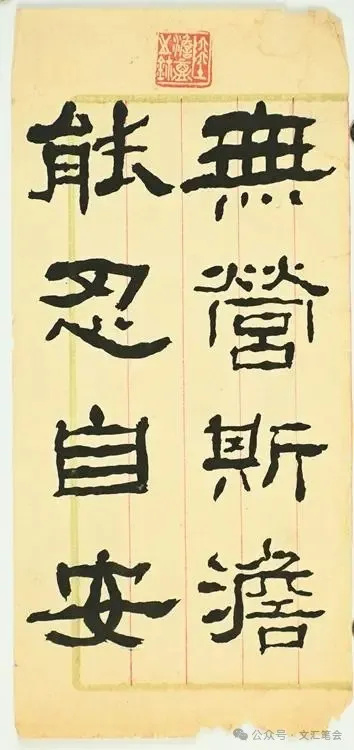 無營斯澹
能忍自安
公众号·文汇笔会